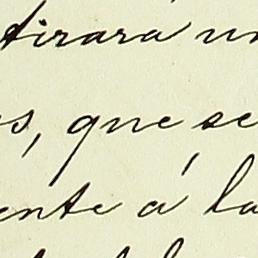 tirara un
s, que se
ente á la